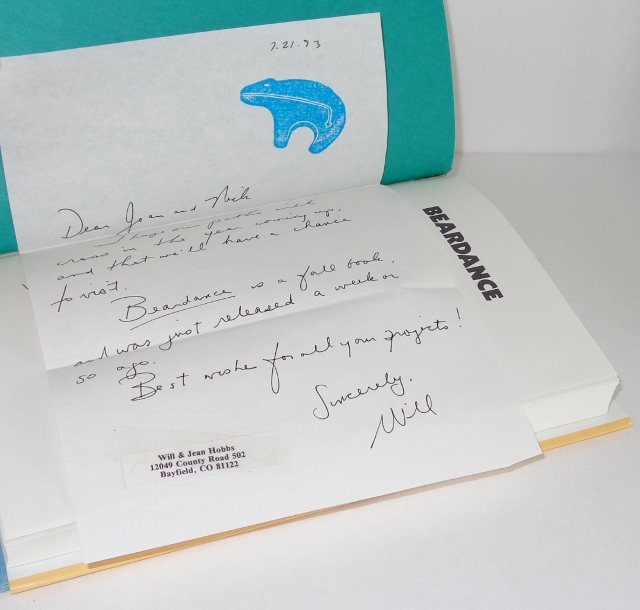 7.21.93
Dear Joan and Nick
paths will
cross in the year coming up,
and that we'll have a chance
to visit.
Beardance is a fall book,
and was just released a week or
so ago.
Best wishes for all your projects!
Sincerely,
Will
Will & Jean Hobbs
12049 County Road 502
Bayfield, CO 81122
BEARDANCE